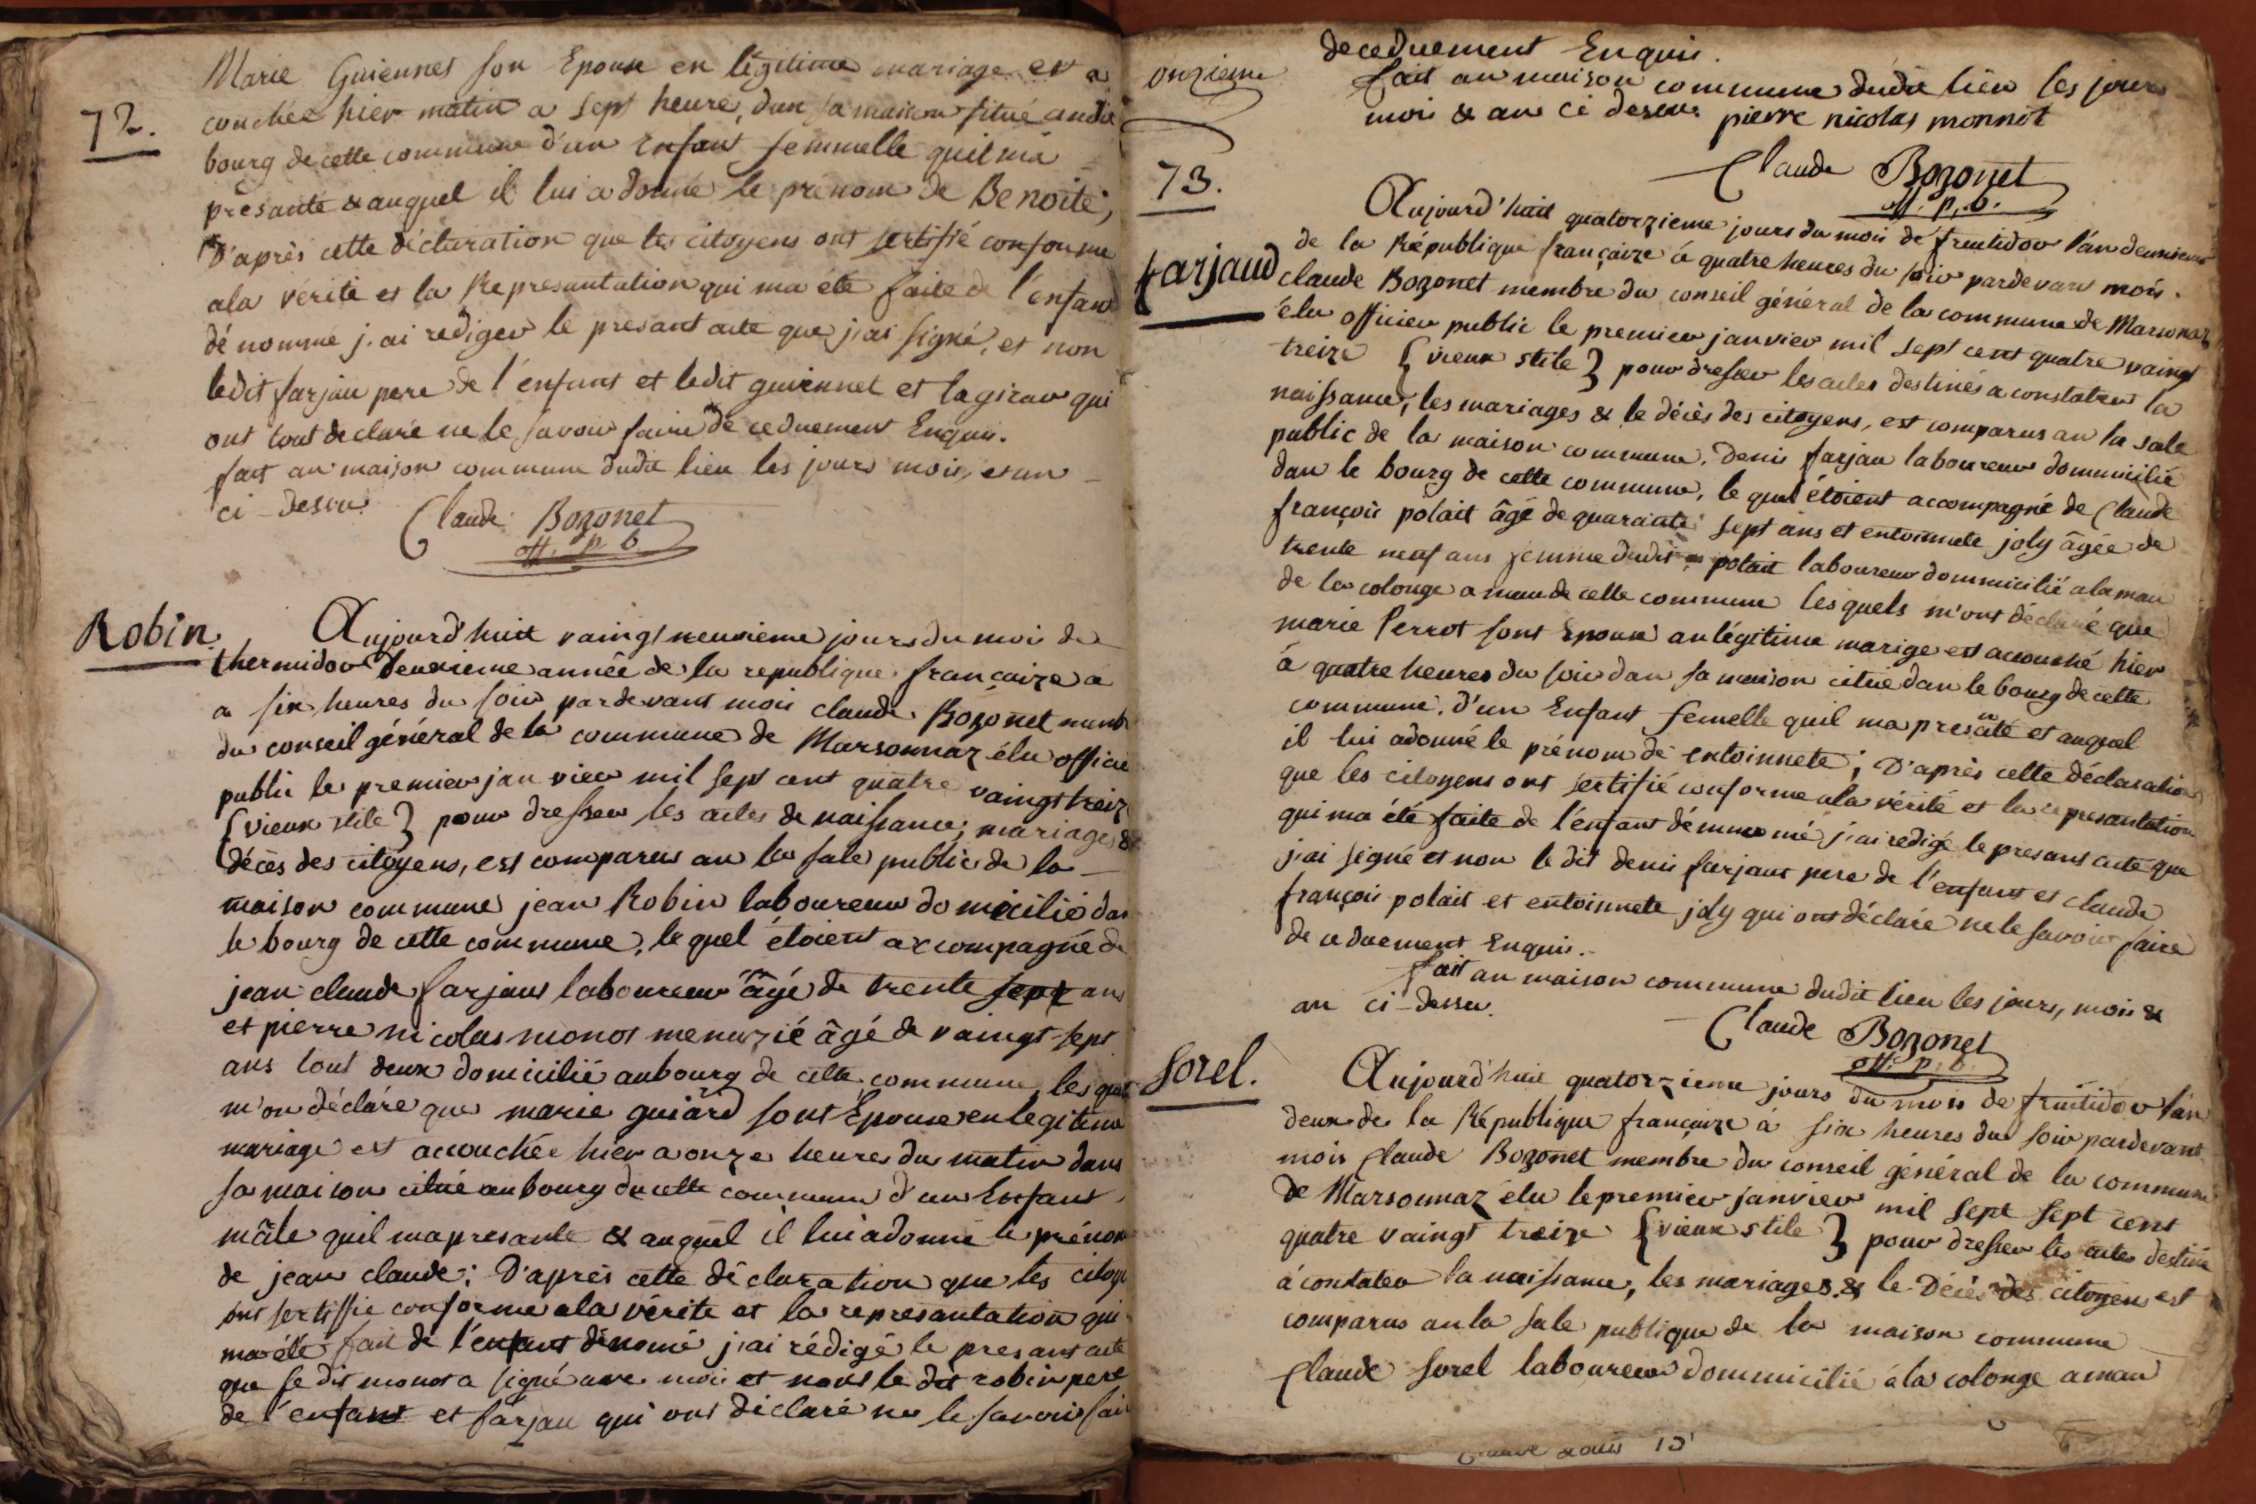 72.
Marie Guiennet son Epouse en légitime mariage est a
couchée hier matin a sept heure, dan sa maison situé audit
bourg de cette commune d'un Enfant femmelle quil ma
présanté & auquel il lui a donné le prénom de Benoite;
D'après cette déclaration que les citoyens ont sertifié conforme
ala vérité et la Représantation qui ma été faite de l'enfant
dénommé j'ai rediger le présant acte que j'ai signé, et non
ledit farjau pere de l'enfant et ledit guiennet et la girau qui
ont tout declaré ne le savoir faire de ceduement Enquis.
fait au maison commune dudit lieu les jours mois et an
ci-dessu.
Claude Bozonet
off. p. b.
Robin.
Aujourd'huit vaingt neuvieme jours du moi de
thermidor deuxieme année de la republique françaize a
a six heures du soir pardevant moi claude Bozonet memb
du conseil général de la commune de Marsonnaz élu officie
public le premier janvier mil sept cent quatre vaingt treiz
{vieux stile} pour dresser les actes de naissance, mariages &
décès des citoyens, est comparus au la sale public de la
maison commune jean Robin laboureur domicilié dan
le bourg de cette commune, le quel étoient accompagné de
jean claude farjaus laboureur âgé de trente sept ans
et pierre nicolas monot menuzié âgé de vaingt sept
ans tout deux domicilié aubourg de cette commune, les quel
m'on déclaré que marie guiard sont Epouse en legitime
mariage est accouchée hier a onze heures du matin dans
sa maison citué au bourg de cette commune d'un Enfant
mâle quil ma presanté & auquel il lui a donné le prénom
de jean claude; D'après cette déclaration que les citoye
ont sertiffié conforme ala vérité et la représantation qui
ma été fait de l'enfant dénomé j'ai rédigé le presant acte
que le dit monot a signé avec moi et nont le dit robin pere
de l'enfant et farjau qui ont déclaré ne le savoir fair
onzieme
deceduement Enquis.
fait au maison commune dudit lieu les jours
moi & an ci desue. pierre nicolas monnot
Claude Bozonet
off. p. b.
73.
farjaud
Aujourd'huit quatorzieme jours du mois de fruitidor l'an deuxieme
de la République françaize à quatre heures du soir pardevant mois
claude Bozonet membre du conseil général de la commune de Marsonaz
élu officier public le premier janvier mil sept cent quatre vaingt
treize {vieux stile} pour dresser les actes destinés a constater la
naissance, les mariages & le décès des citoyens, est comparus au la sale
public de la maison commune. Denis farjau laboureur dommicilié
dan le bourg de cette commune, le quel étoient accompagné de Claude
françois polait âgé de quarante sept ans et entoinnete joly âgée de
trente neuf ans femme dudit polait laboureur dommicilié ala mau
de la colonge a mau de cette commune lesquels m'ont déclaré que
marie Perrot sont Epouse au légitime marige est accouché hier
à quatre heures du soir dan sa maison citué dan le bourg de cette
commune. d'un Enfant femelle quil ma presanté et auquel
il lui adonné le prénom de entoinnete; D'après cette déclaration
que les citoyens ont sertifié conforme ala vérité et la représantation
qui ma été faite de l'enfant démmomé j'ai redigé le presant acte que
j'ai signé et non le dit denis farjaut pere de l'enfant et claude
françois polait et entoinnete joly qui ont déclaré ne le savoir faire
de ceduement Enquis.
fait au maison commune dudit lieu les jours, mois &
an ci-dessu.
Claude Bozonet
off. p. b.
Sorel.
Aujourd'huit quatorzieme jours du mois de fruitidor l'an
deux de la République françaize à six heures du soir pardevant
mois Claude Bozonet membre du conseil général de la commune
de Marsonnaz élu le premier janvier mil sept sept cent
quatre vaingt treize {vieux stile} pour dresser les actes destiné
à contater la naissance, les mariages & le Décès des citoyen est
comparus au la sale publique de la maison commune
Claude Sorel laboureur dommicilié à la colonge a mau